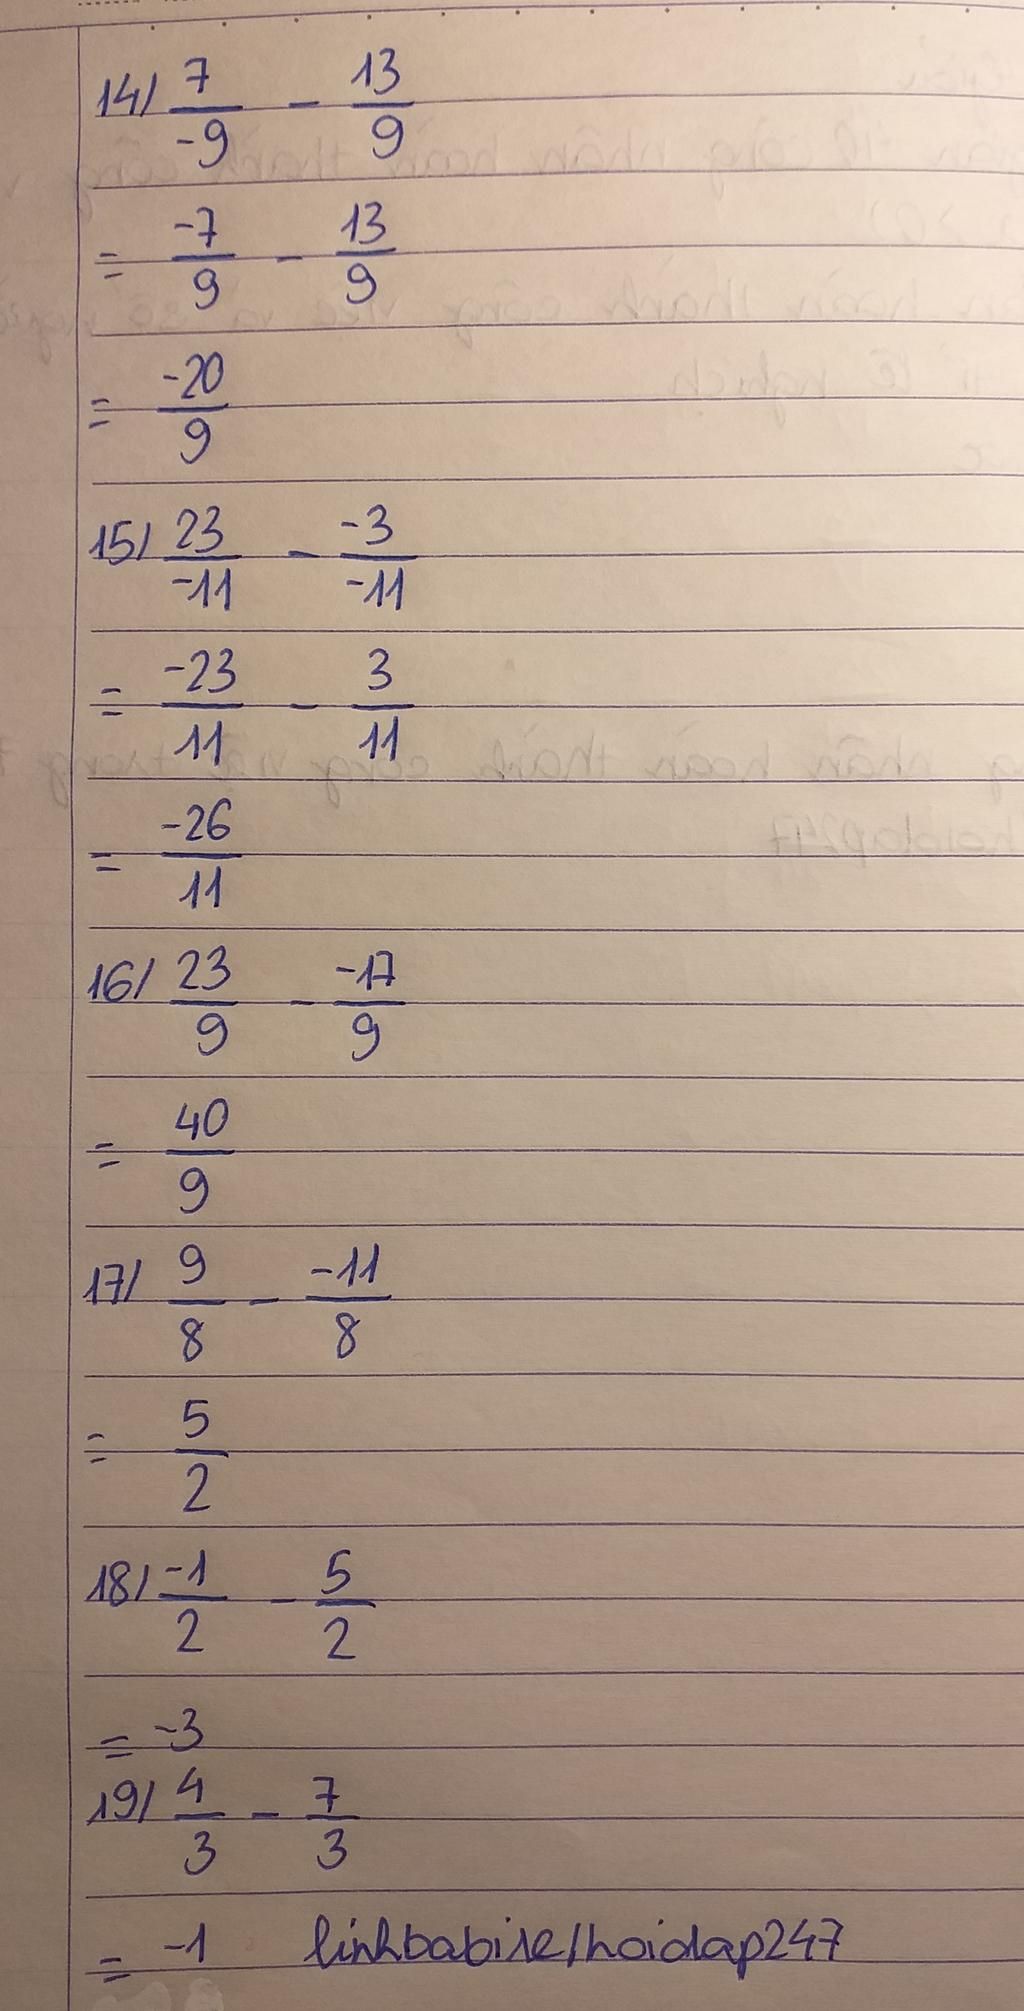 14/ 7/-9 - 13/9
= -7/9 - 13/9
= -20/9
15/ 23/-11 - -3/-11
= -23/11 - 3/11
= -26/11
16/ 23/9 - -17/9
= 40/9
17/ 9/8 - -11/8
= 5/2
18/ -1/2 - 5/2
= -3
19/ 4/3 - 7/3
= -1 linhbabise/hoidap247